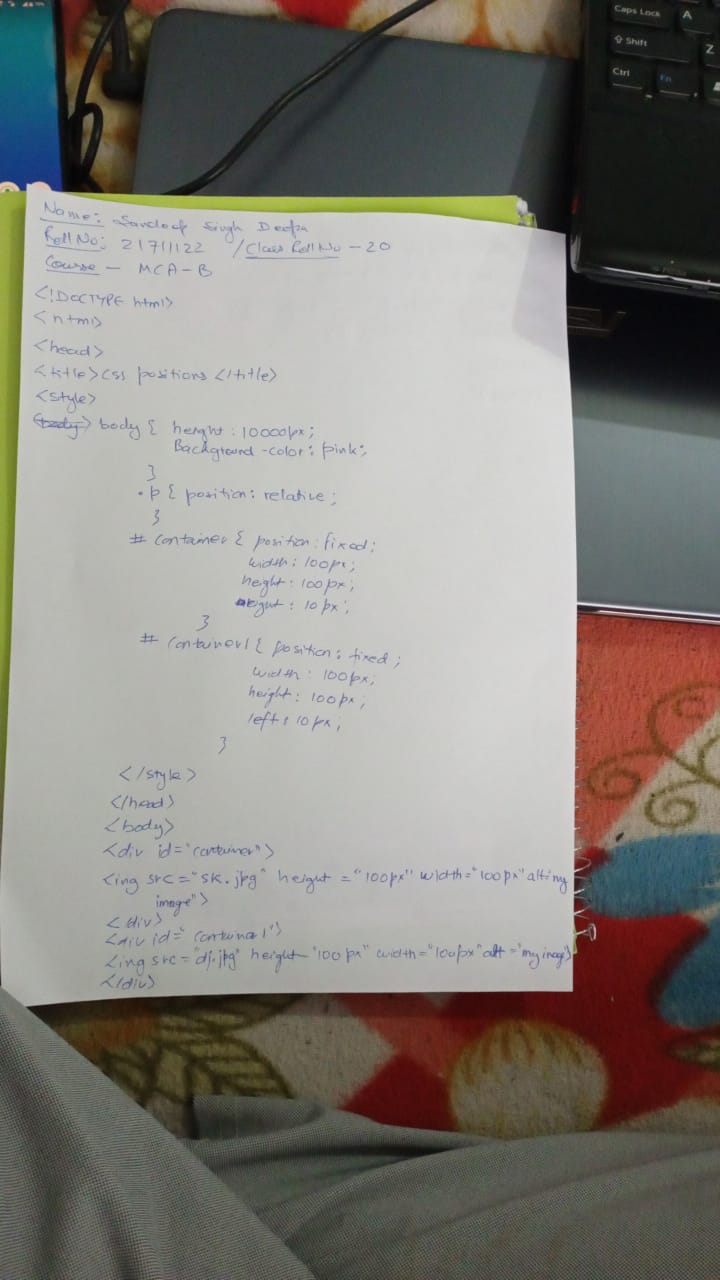 Caps Lock A
Shift Z
Ctrl Fn
Name: Sandeep Singh Deopa
Roll No: 21711122 / Class Roll No - 20
Course - MCA-B
<!DOCTYPE html>
<html>
<head>
<title>css positions </title>
<style>
body { height: 10000px;
Background-color: pink;
}
.p { position: relative;
}
# container { position: fixed;
width: 100px;
height: 100px;
right: 10px;
}
# container1 { position: fixed;
width: 100px;
height: 100px;
left: 10px;
}
</style>
</head>
<body>
<div id="container">
<img src="sk.jpg" height="100px" width="100px" alt="my
image">
</div>
<div id="container1">
<img src="dj.jpg" height="100px" width="100px" alt="my image">
</div>